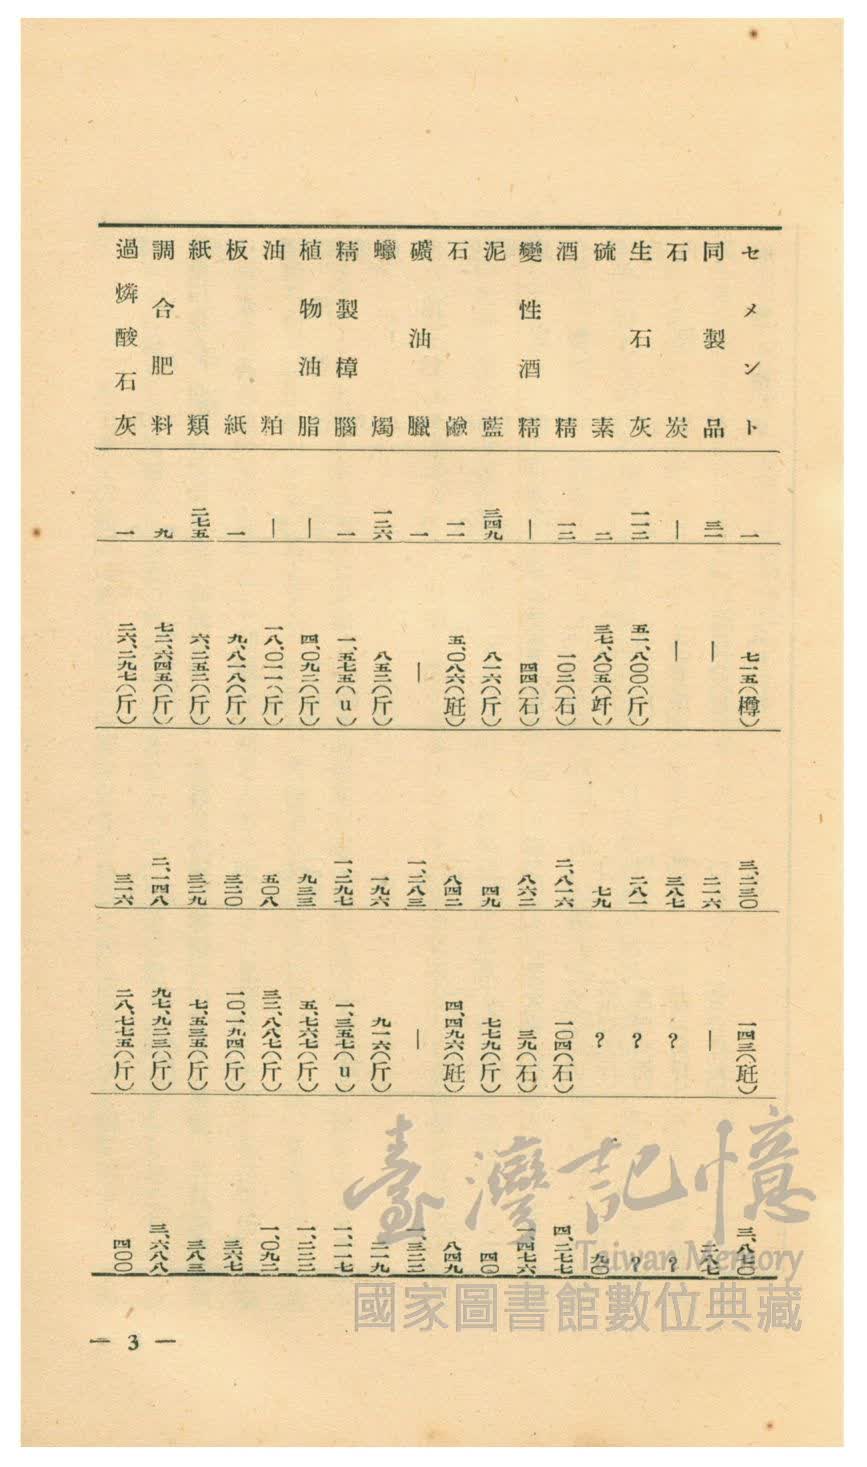 セメント 一 七一五(樽) 三、二三〇 一四三(瓩) 三、八七〇
同製品 三一 — 二一六 — 二八七
石炭 — — 三八七 ? ?
生石灰 一一二 五一、八〇〇(斤) 二八一 ? ?
硫素 二 三七、八〇五(竏) 七九 ? 九〇
酒精 一二 一〇二(石) 二、八一六 一〇四(石) 四、二七七
變性酒精 — 四四(石) 八六二 三九(石) 一、四七六
泥藍 三四九 八一六(斤) 四九 七七九(斤) 四〇
石鹼 一一 五、〇八六(瓩) 八四二 四、四九六(瓩) 八四九
礦油臘 一 — 一、二八三 — 一、三二二
蠟燭 一二六 八五二(斤) 一九六 九一六(斤) 二一九
精製樟腦 一 一、五七五(u) 一、二九七 一、三五七(u) 一、一一七
植物油脂 — 四、〇九二(斤) 九三三 五、七六七(斤) 一、二二二
油粕 — 一八、〇一一(斤) 五〇八 三二、八八七(斤) 一、〇九二
板紙 一 九、八一八(斤) 三二〇 一〇、一九四(斤) 三六七
紙類 二七五 六、二五二(斤) 三二九 七、五三五(斤) 三八三
調合肥料 九 七二、六四五(斤) 二、一四八 九七、九二三(斤) 三、六八八
過燐酸石灰 一 二六、二九七(斤) 三一六 二八、七七五(斤) 四〇〇
— 3 —
臺灣記憶
Taiwan Memory
國家圖書館數位典藏